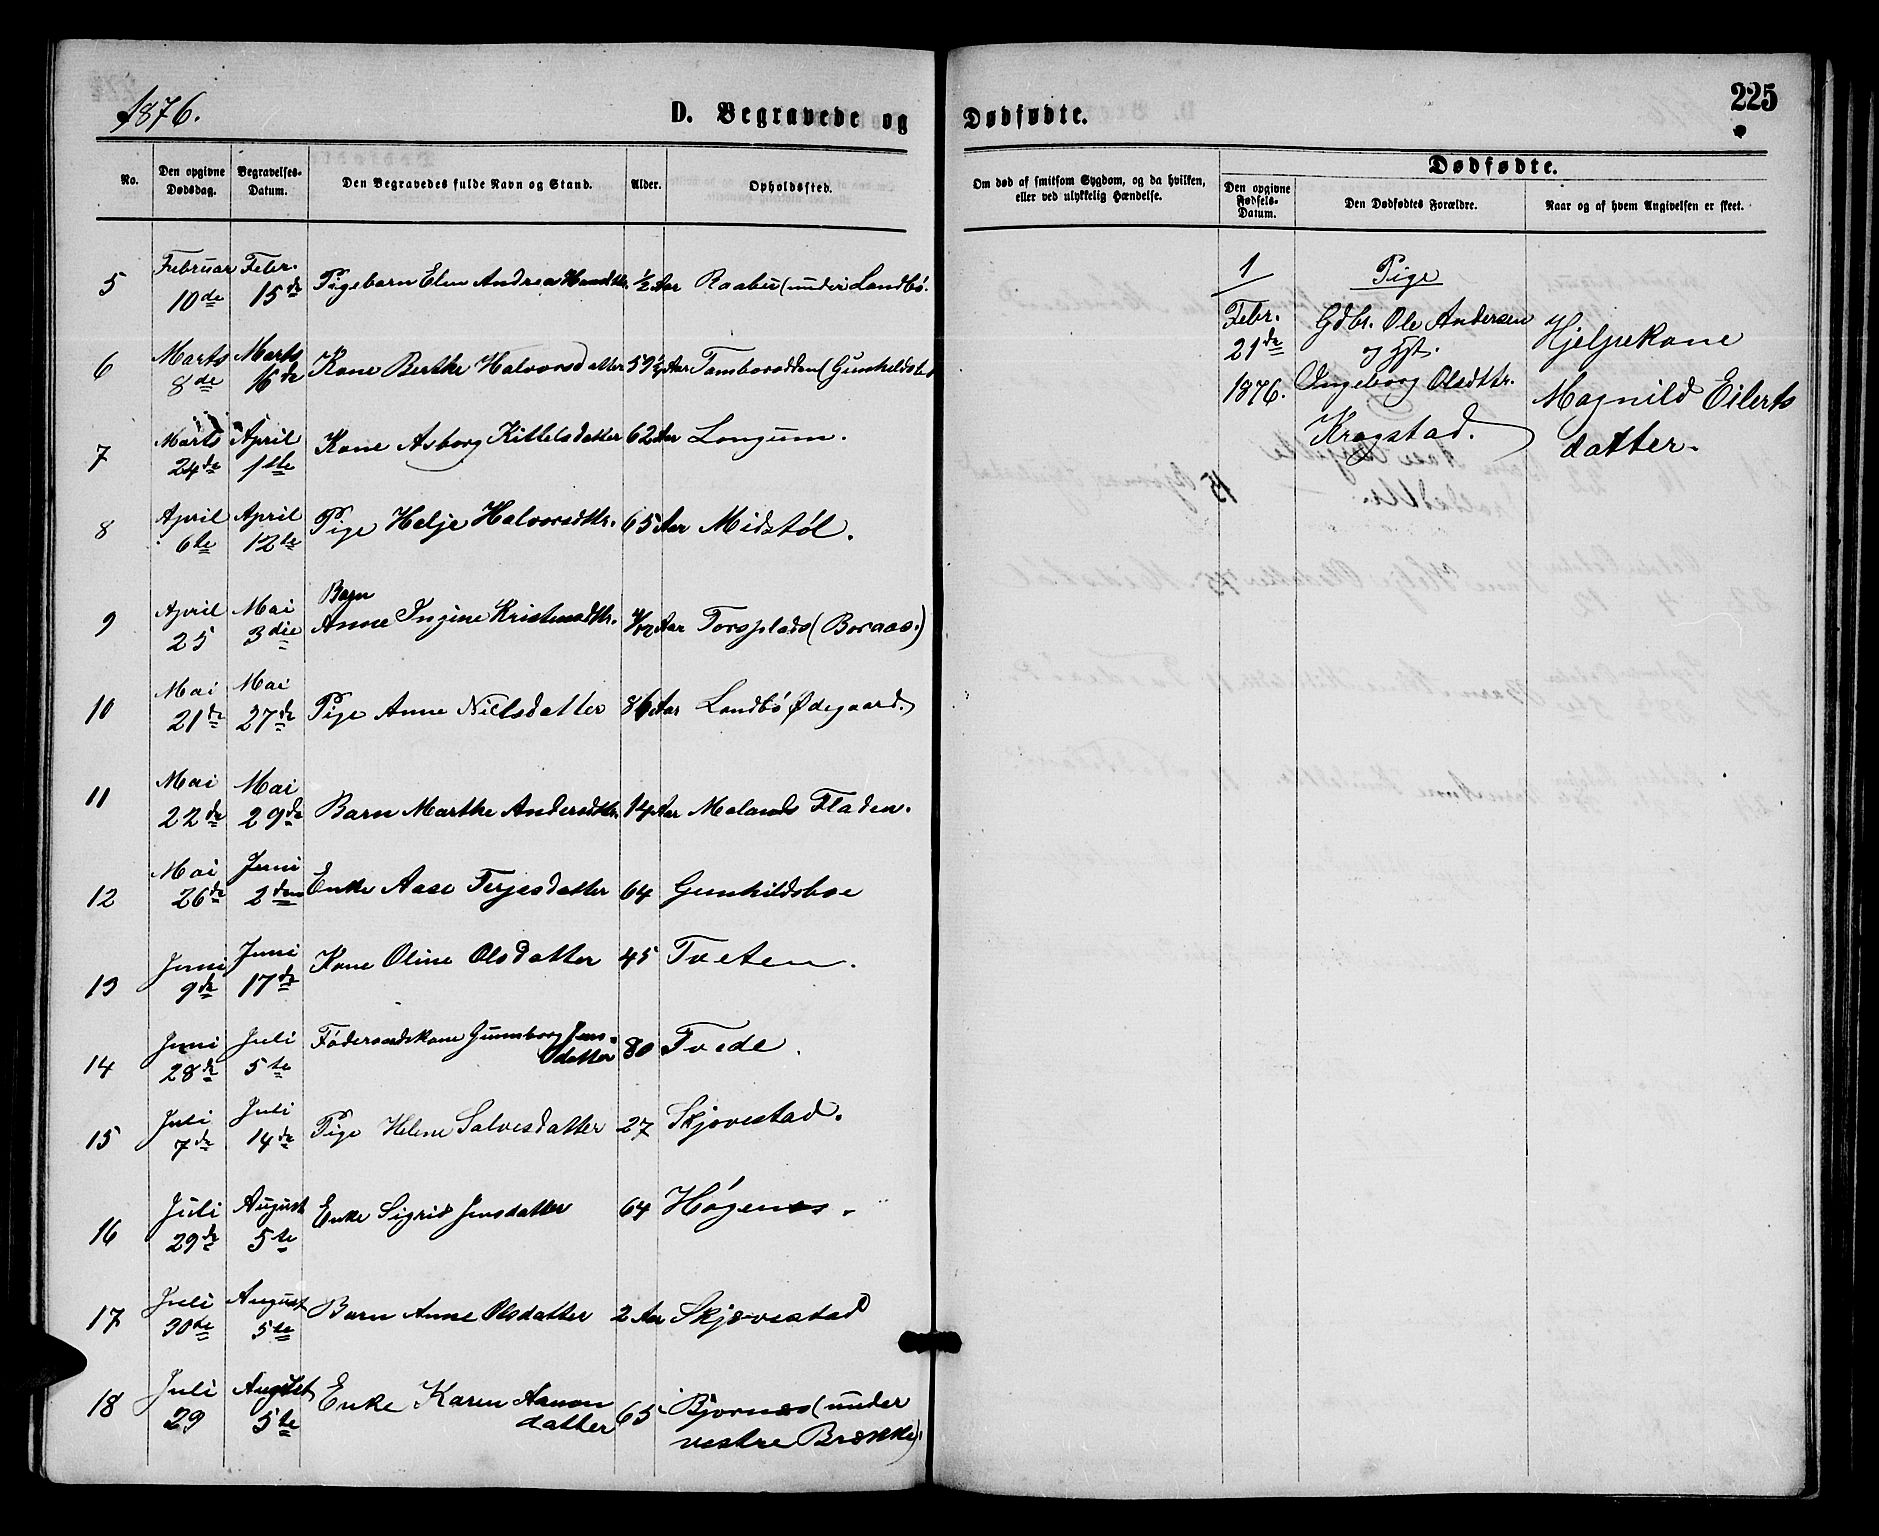 1876.
D. Begravede og
No.
Den opgivne Dødsdag.
Begravelses-Datum.
Den Begravedes fulde Navn og Stand.
Alder.
Opholdssted.
5 Februar 10de Febr. 15de Pigebarn Elen Andrea 1/2 Aar Raaber (under Landbö.
6 Marts 8de Marts 16de Kone Berthe Halvorsdatter 59 1/2 Aar Tamborodden (Gunhildsbo
7 Marts 24de April 1ste Kone Asborg Kittelsdatter 62 Aar Longum.
8 April 6te April 12te Pige Helje Halvorsdttr. 65 Aar Midstöl.
9 April 25 Mai 3die Barn Anne Ingine Aar Torsplads (Boraas.)
10 Mai 21de Mai 27de Pige Anne Nielsdatter 86 Aar Landbö Ødegaard.
11 Mai 22de Mai 29de Barn Marthe Andersdtr. 14 Aar Molands Fladen.
12 Mai 26de Juni 2den Enke Aase Terjesdatter 64 Gunhildsboe
13 Juni 9de Juni 17de Kone Oline Olsdatter 45 Tveten.
14 Juni 28de Juli 5te Föderaadskone Gunnborg Jens-
datter 80 Tvede.
15 Juli 7de Juli 14de Pige Helene Salvesdatter 27 Skjevestad.
16 Juli 29de August 5te Enke Sigrid Jensdatter 64 Høgenes.
17 Juli 30te August 5te Barn Anne Olsdatter 2 Aar Skjævestad
18 Juli 29 August 5te Enke Karen Aanon
datter 65 Bjornæs (under
vestre Brække).
225
Dødfødte.
Om død af smitsom Sygdom, og da hvilken,
eller ved ulykkelig Hændelse.
Dødfødte.
Den opgivne Fødsels-Datum.
Den Dødfødtes Forældre.
Naar og af hvem Angivelsen er skeet.
1
Febr.
21de
1876.
Pige
Gdbr. Ole Andersen
og Hst.
Ingeborg Olsdttr.
Kragstad.
Hjelpekone
Magnild Eilerts
datter.